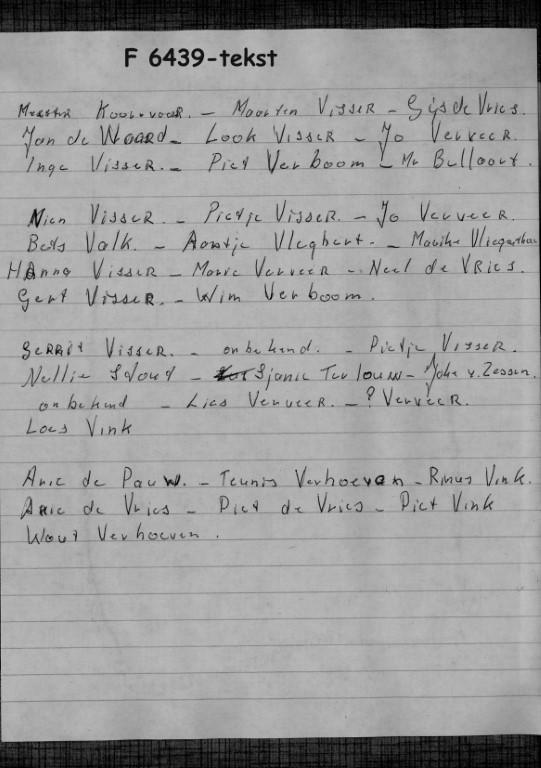 F 6439-tekst
Meester - Maarten Visser - Gijs de Vries.
Jan de Waard - Look Visser - Jo Verveer.
Inge Visser. - Piet Verboom - Mr Bellaart.
Nien Visser. - Pietje Visser. - Jo Verveer.
Bets Valk. - Aantje Vleghert. - Marike
HAnna Visser - Marie Verveer - Neel de Vries.
Gert Visser. - Wim Verboom.
Gerrit Visser. - onbekend. - Pietje Visser.
Nellie Stout - Sjanie Terlouw - Joke v. Zessen.
onbekend - Lies Verveer. - ? Verveer.
Loes Vink
Arie de Pauw. - Teunis Verhoeven - Rinus Vink.
Arie de Vries - Piet de Vries - Piet Vink
Wout Verhoeven.